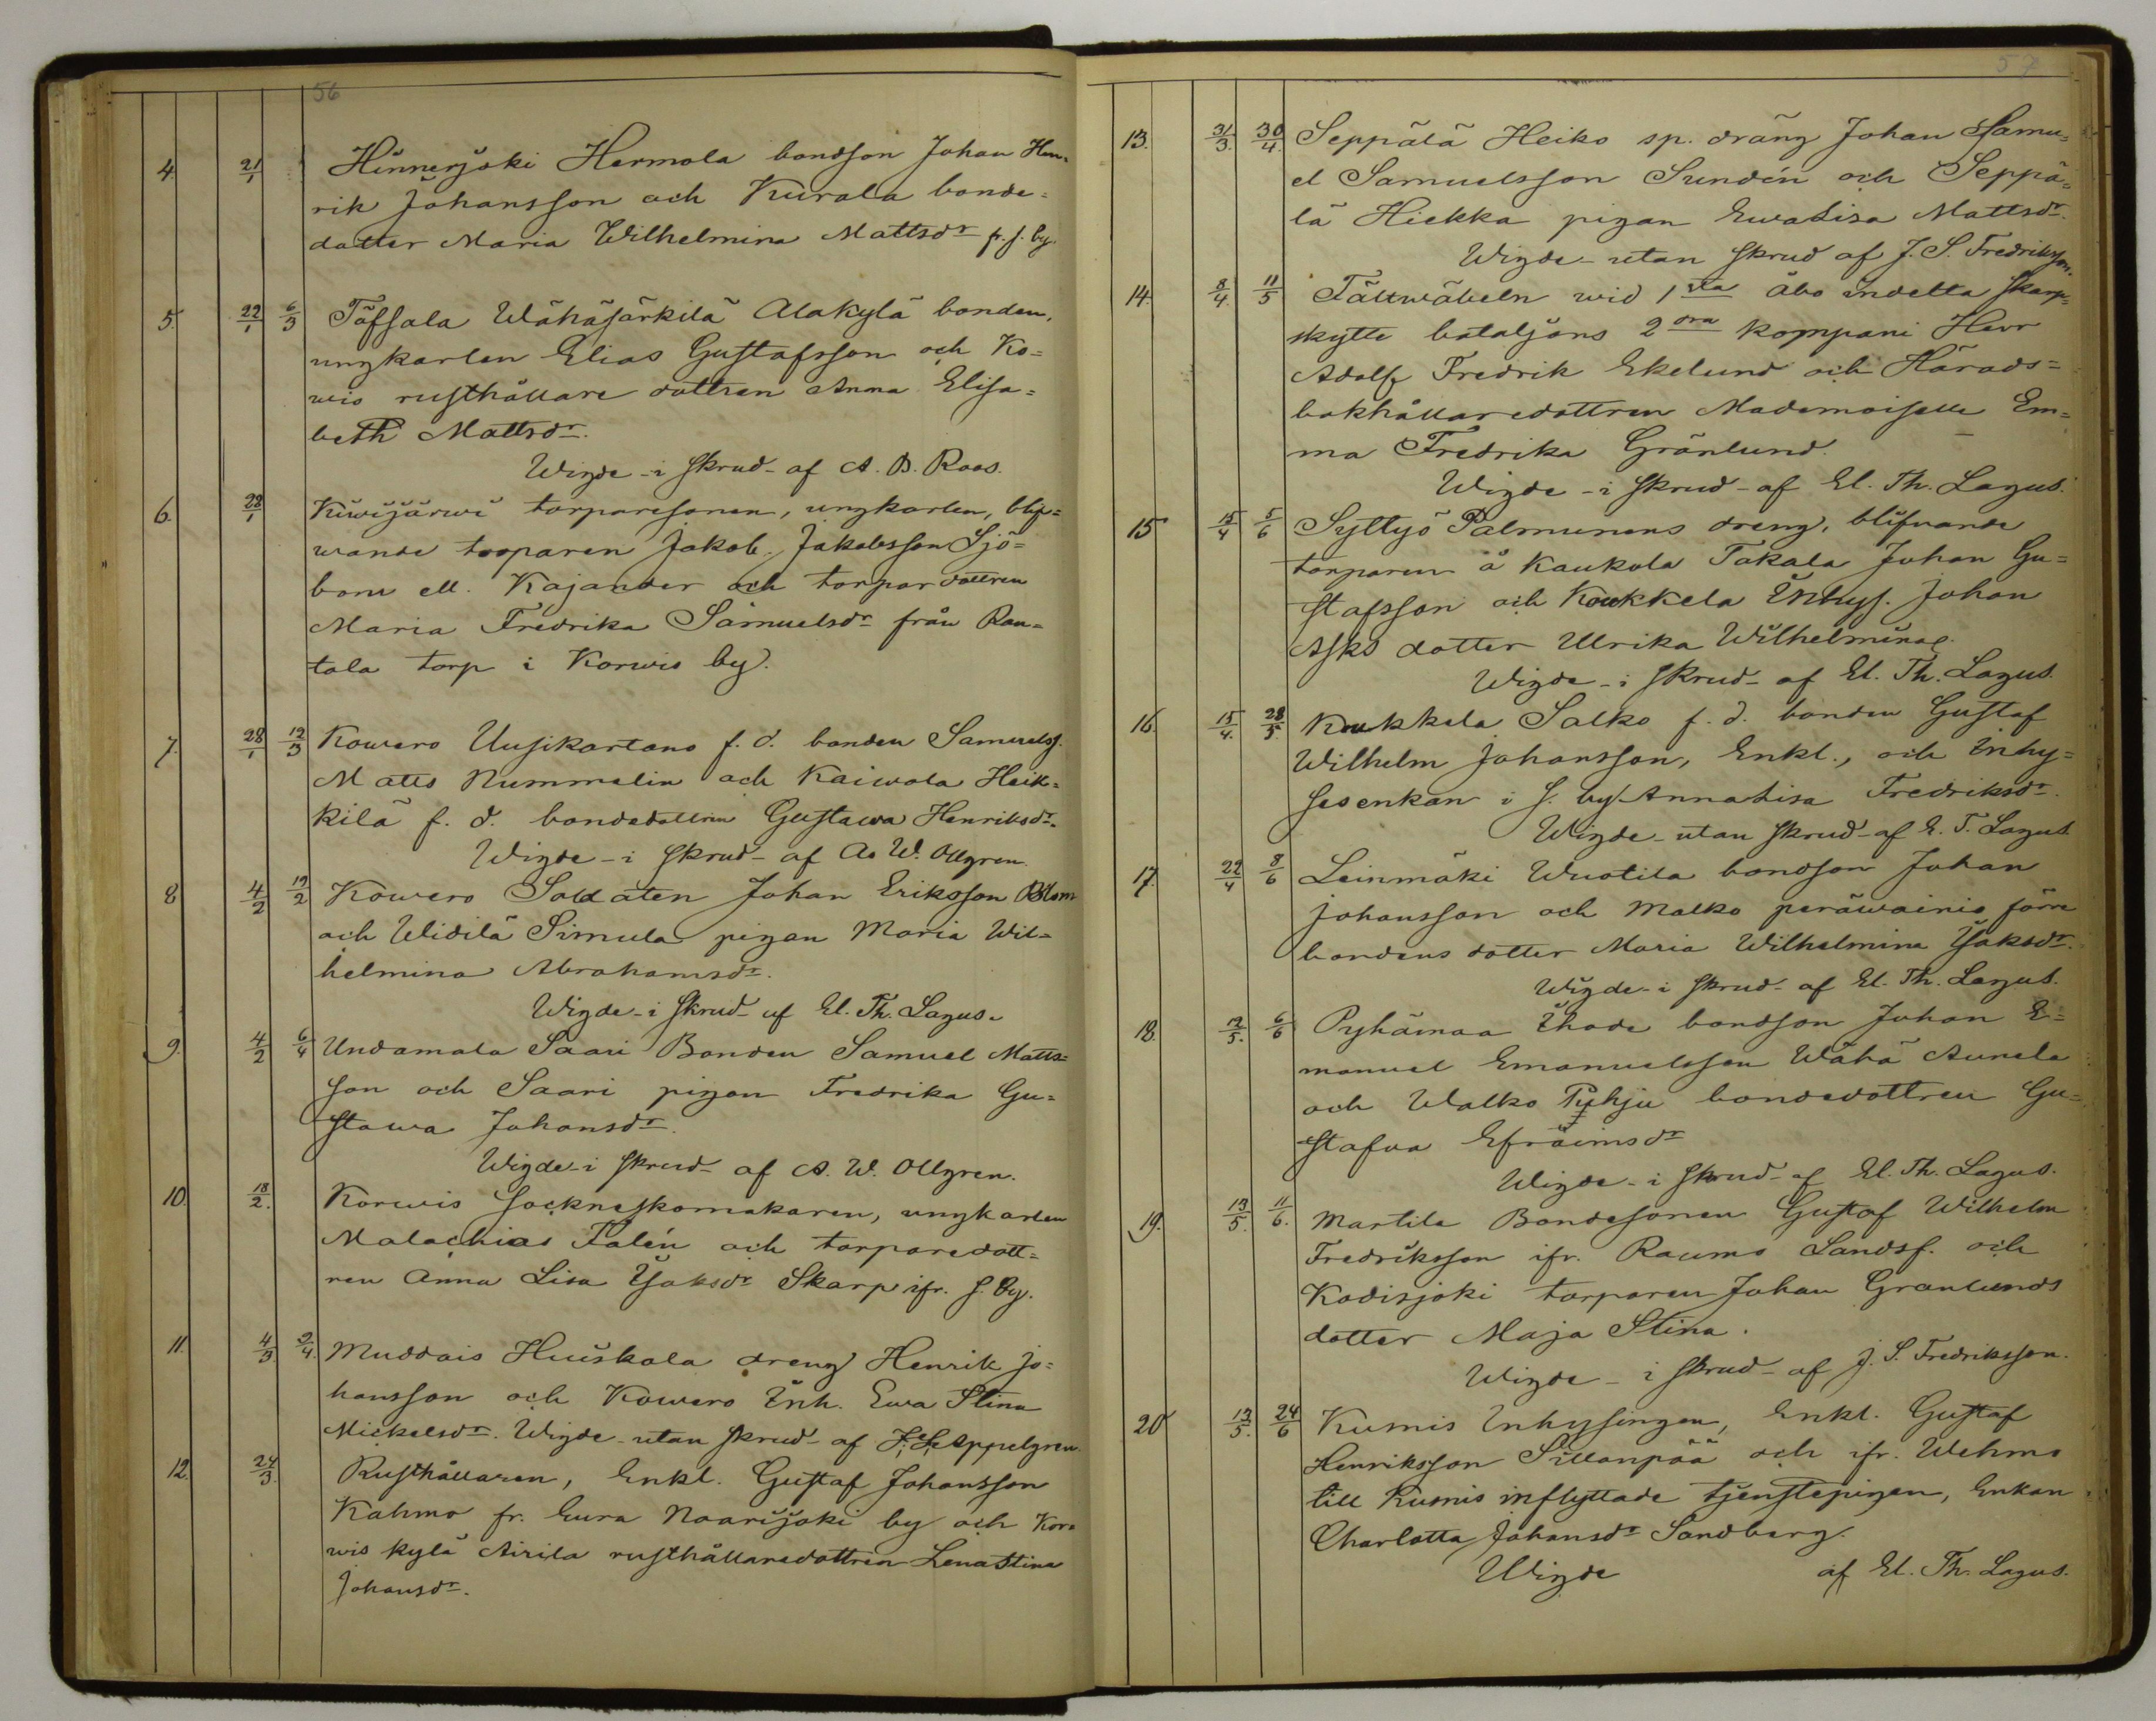 56
4. 21/1 Hinnerjoki Hermola bondson Johan Hen-
rik Johansson och Kurala bonde=
dotter Maria Wilhelmina Mattsdr fr. s. by.
5. 22/1 6/3 Töfsala Wähäjärkilä Alakylä bonden,
ungkarlen Elias Gustafsson och Ko=
wio rusthållare dottren Anna Elisa=
beth Mattsdr.
Wigde - i skrud - af A. B. Roos.
6. 28/1 Kiwijärwi torparesonen, ungkarlen, blif=
wande torparen Jakob Jakobsson Sjö=
bom ell. Kajander och torpardottren
Maria Fredrika Samuelsdr från Ran=
tala torp i Korwis by.
7. 28/1 12/3 Kowero Uusikartano f. d. bonden Samuelsf.
Matts Nummelin och Kaiwola Heik=
kilä f. d. bondedottren Gustawa Henriksdr.
Wigde - i skrud - af A. W. Ollgren.
8 4/2 19/2 Kowero Soldaten Johan Eriksson Blom
och Widilä Simula pigan Maria Wil=
helmina Abrahamsdr.
Wigde - i skrud - af El. Th. Lagus.
9. 4/2 6/4 Undamala Saari Bonden Samuel Matts=
son och Saari pigan Fredrika Gu=
stawa Johansdr.
Wigde - i skrud - af A. W. Ollgren.
10. 18/2. Korwis Sockneskomakaren, ungkarlen
Malachias Falén och torparedott=
ren Anna Lisa Isaksdr Skarp ifr. s. by.
11. 4/3. 2/4. Muddais Huiskala dreng Henrik Jo=
hansson och Kowero Inh. Ewa Stina
Mickelsdr. Wigde - utan skrud - af Appelgren.
12. 24/3. Rusthållaren, Enkl. Gustaf Johansson
Kahmo fr. Eura Naarijoki by och Kor=
wis kylä Airila rusthållaredottren Lena Stina
Johansdr.
57
13. 31/3. 30/4. Seppälä Heiko sp. dräng Johan Samu=
el Samuelsson Sundén och Seppä=
lä Hiekka pigan Ewa Lisa Mattsdr.
Wigde - utan skrud af J. S. Fredriksson.
14. 8/4. 11/5 Fältwäbeln wid 1sta Åbo indelta skarp=
skytte bataljons 2dra kompani Herr
Adolf Fredrik Ekelund och Härads=
bokhållaredottren Mademoiselle Em=
ma Fredrika Grönlund.
Wigde - i skrud - af El. Th. Lagus.
15 15/4 5/6 Syttyö Palmunens dreng, blifvande
torparen å Kaukola Takala Johan Gu=
stafsson och Koukkela Inhys. Johan
Asks dotter Ulrika Wilhelmina.
Wigde - i skrud - af El. Th. Lagus.
16. 15/4. 28/5. Koukkela Salko f. d. bonden Gustaf
Wilhelm Johansson, Enkl., och Inhy=
sesenkan i s. by Anna Lisa Fredriksdr.
Wigde - utan skrud - af E. T. Lagus
17. 22/4 8/6 Leinmäki Wuotila bondson Johan
Johansson och Malko peräwainio förre
bondens dotter Maria Wilhelmina Isaksdr.
Wigde - i skrud - af El. Th. Lagus.
18. 12/5. 6/6 Pyhämaa Ihode bondson Johan E=
manuel Emanuelsson Wähä Aunela
och Walko Pyhju bondedottren Gu=
stafva Efraimsdr
Wigde - i skrud - af El. Th. Lagus.
19. 13/5. 11/6. Martila Bondesonen Gustaf Wilhelm
Fredriksson ifr. Raumo Landsf. och
Kodisjoki torparen Johan Granlunds
dotter Maja Stina.
Wigde - i skrud - af J. S. Fredriksson.
20 13/5. 24/6 Kumis Inhysingen, Enkl. Gustaf
Henriksson Sillanpää och ifr. Wehmo
till Kumis inflyttade tjenstepigan, Enkan
Charlotta Johansdr Sandberg.
Wigde af El. Th. Lagus.